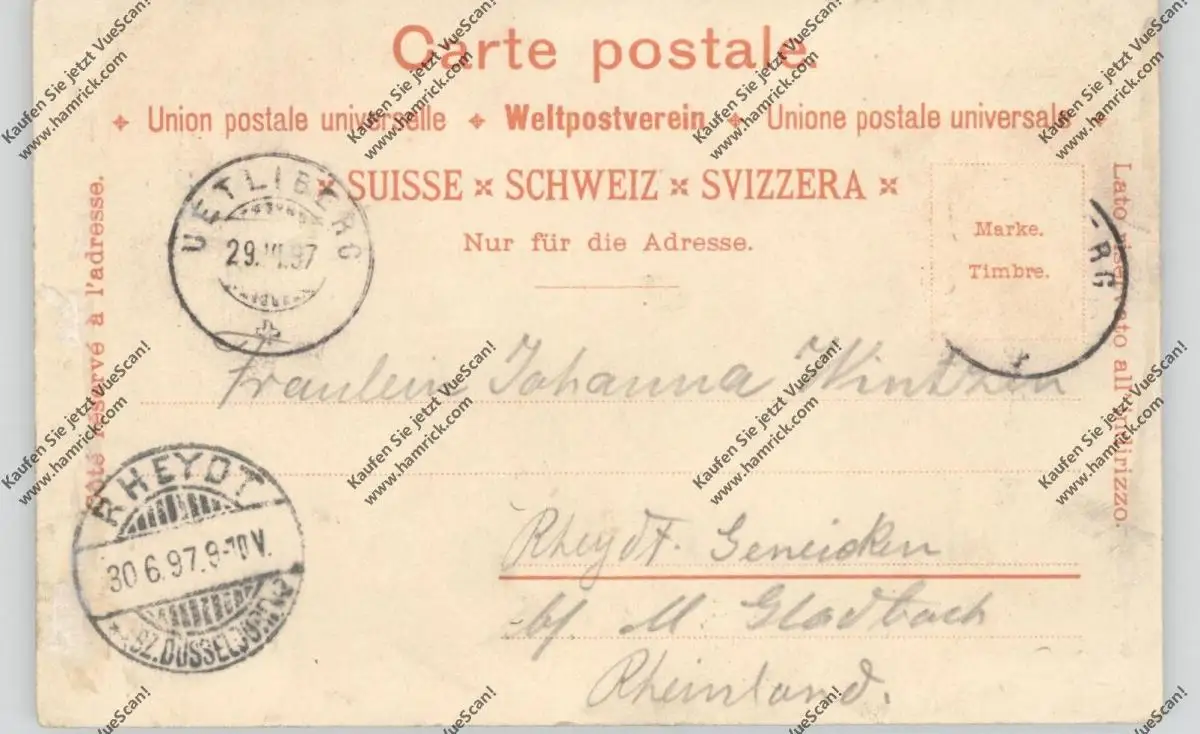 Carte postale.
Union postale universelle Weltpostverein Unione postale universale
SUISSE × SCHWEIZ × SVIZZERA ×
Nur für die Adresse.
Marke.
Timbre.
Côté réservé à l'adresse.
Lato riservato all'indirizzo.
UETLIBERG
29.VI.97
RG
Fräulein Johanna Wintzen
RHEYDT
30 6.97.9-10V.
BZ.DÜSSELDORF
Rheydt. Geneicken
bf M. Gladbach
Rheinland.
Kaufen Sie jetzt VueScan!
www.hamrick.com